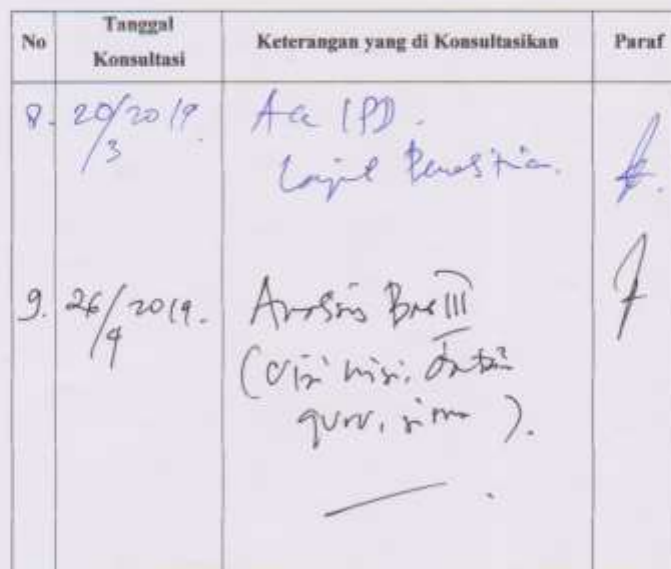 No Tanggal Konsultasi Keterangan yang di Konsultasikan Paraf
8. 20/3 2019 Acc IPD.
Lanjut Penelitian.
9. 26/4 2019. Analisis Bab III
(Visi misi, data
guru, siswa).